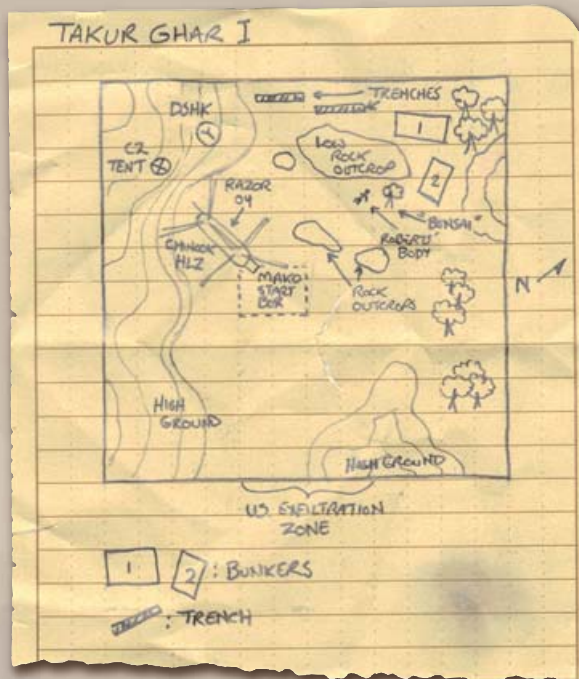 TAKUR GHAR I
DSHK
TRENCHES
1
C2
TENT
LOW
ROCK
OUTCROP
2
RAZOR
04
"BONSAI"
ROBERTS'
BODY
CHINOOK
HLZ
MAKO
START
BOX
ROCK
OUTCROPS
N
HIGH
GROUND
HIGH GROUND
U.S. EXFILTRATION
ZONE
1 2 : BUNKERS
: TRENCH